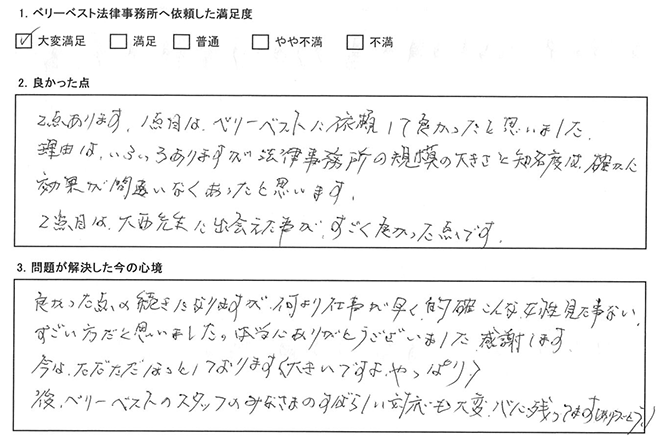 1. ベリーベスト法律事務所へ依頼した満足度
大変満足 満足 普通 やや不満 不満
2. 良かった点
2点あります。1点目は、ベリーベストに依頼して良かったと思いました。
理由は、いろいろありますが法律事務所の規模の大きさと知名度は、確かに
効果が間違いなくあったと思います。
2点目は、大西先生に出会えた事が、すごく良かった点です。
3. 問題が解決した今の心境
良かった点の続きになりますが、何より仕事が早く的確こんな女性見た事ない、
すごい方だと思いました。本当にありがとうございました 感謝します
今は、ただただほっとしております(大きいですよ、やっぱり)
後、ベリーベストのスタッフのみなさまのすばらしい対応も大変、心に残ってます(ありがとう)